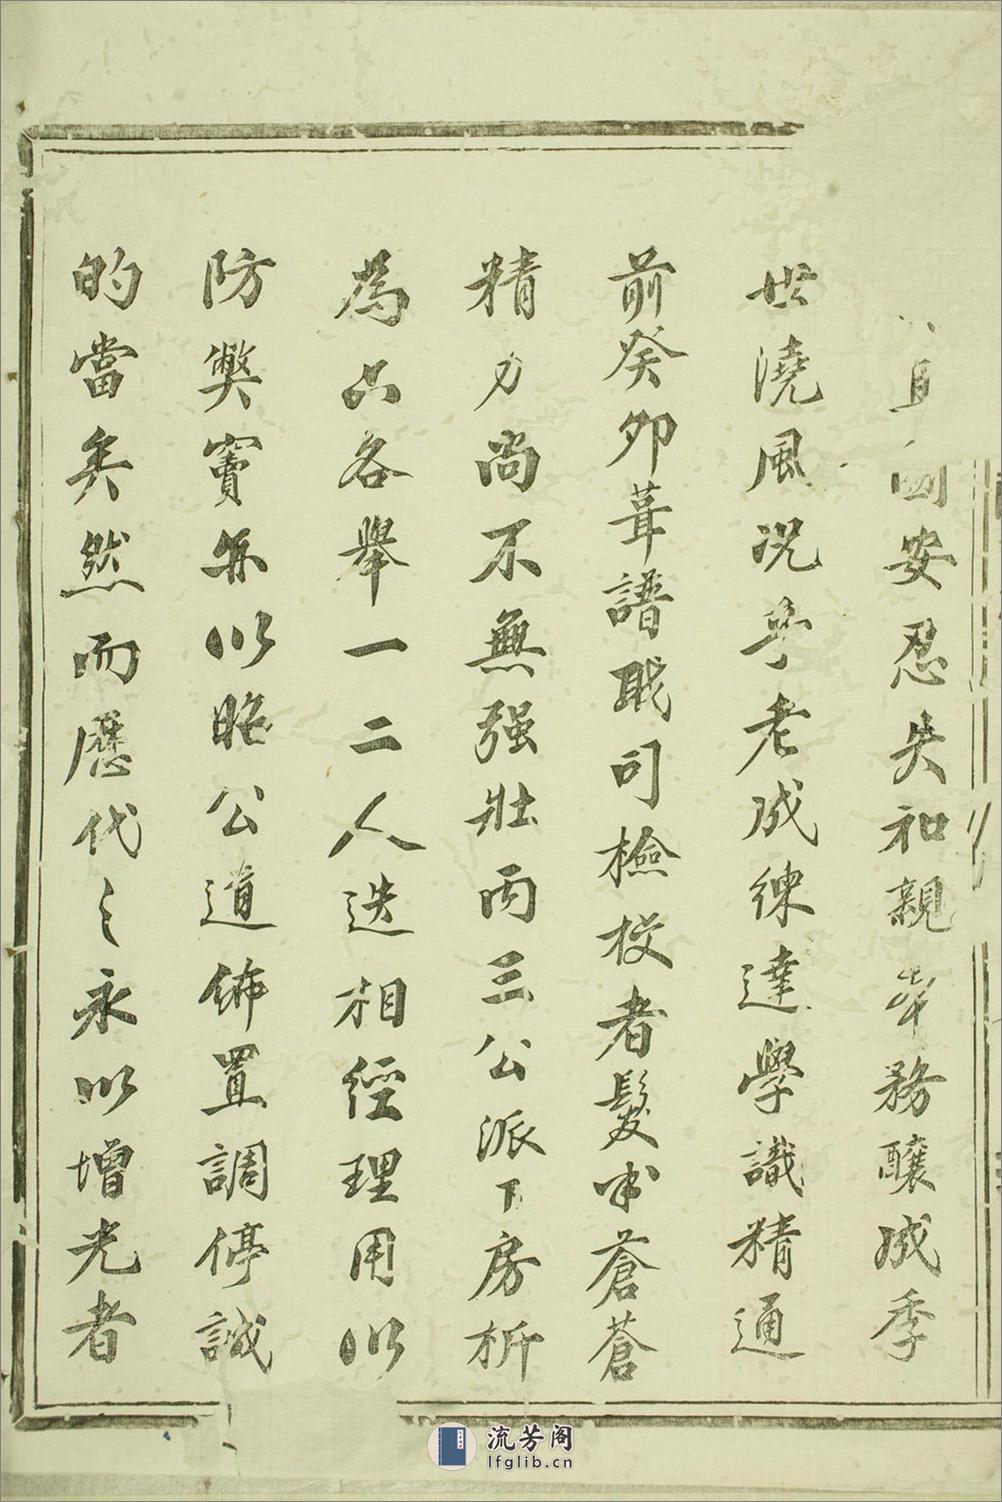 安忍失和親牟務釀成季
世澆風況乎老成練達學識精通
前癸卯葺譜職司檢校者髮雖蒼蒼
精力尚不無強壯丙三公派下房析
為六各舉一二人迭相經理用以
防弊竇并以昭公道佈置調停誠
的當矣然而歷代之永以增光者
流芳阁
lfglib.cn